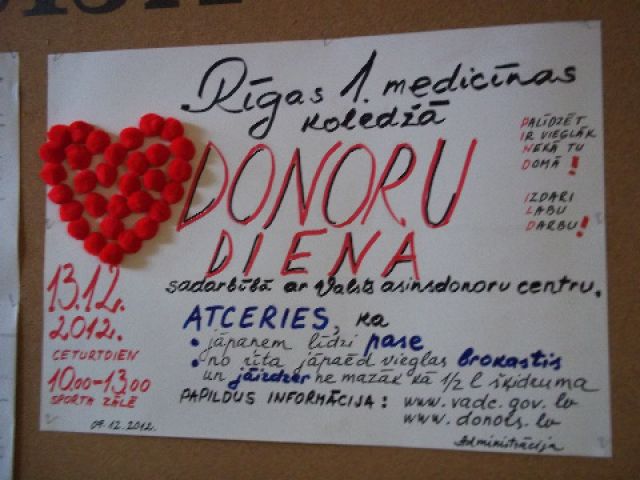 Rīgas 1. medicīnas
koledžā
DONORU
DIENA
sadarbībā ar Valsts asinsdonoru centru.
PALĪDZĒT
IR VIEGLĀK
NEKĀ TU
DOMĀ!
IZDARI
LABU
DARBU!
13.12.
2012.
CETURTDIEN
10.00-13.00
SPORTA ZĀLĒ
ATCERIES, ka
• jāpaņem līdzi pase
• no rīta jāpaēd vieglas brokastis
un jāizdzer ne mazāk kā 1/2 l šķidruma
PAPILDUS INFORMĀCIJA: www.vadc.gov.lv
www.donors.lv
09.12.2012.
Administrācija